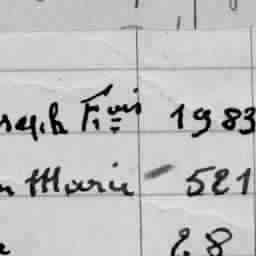 seph Fçois 1983
n Marie 521
e 28